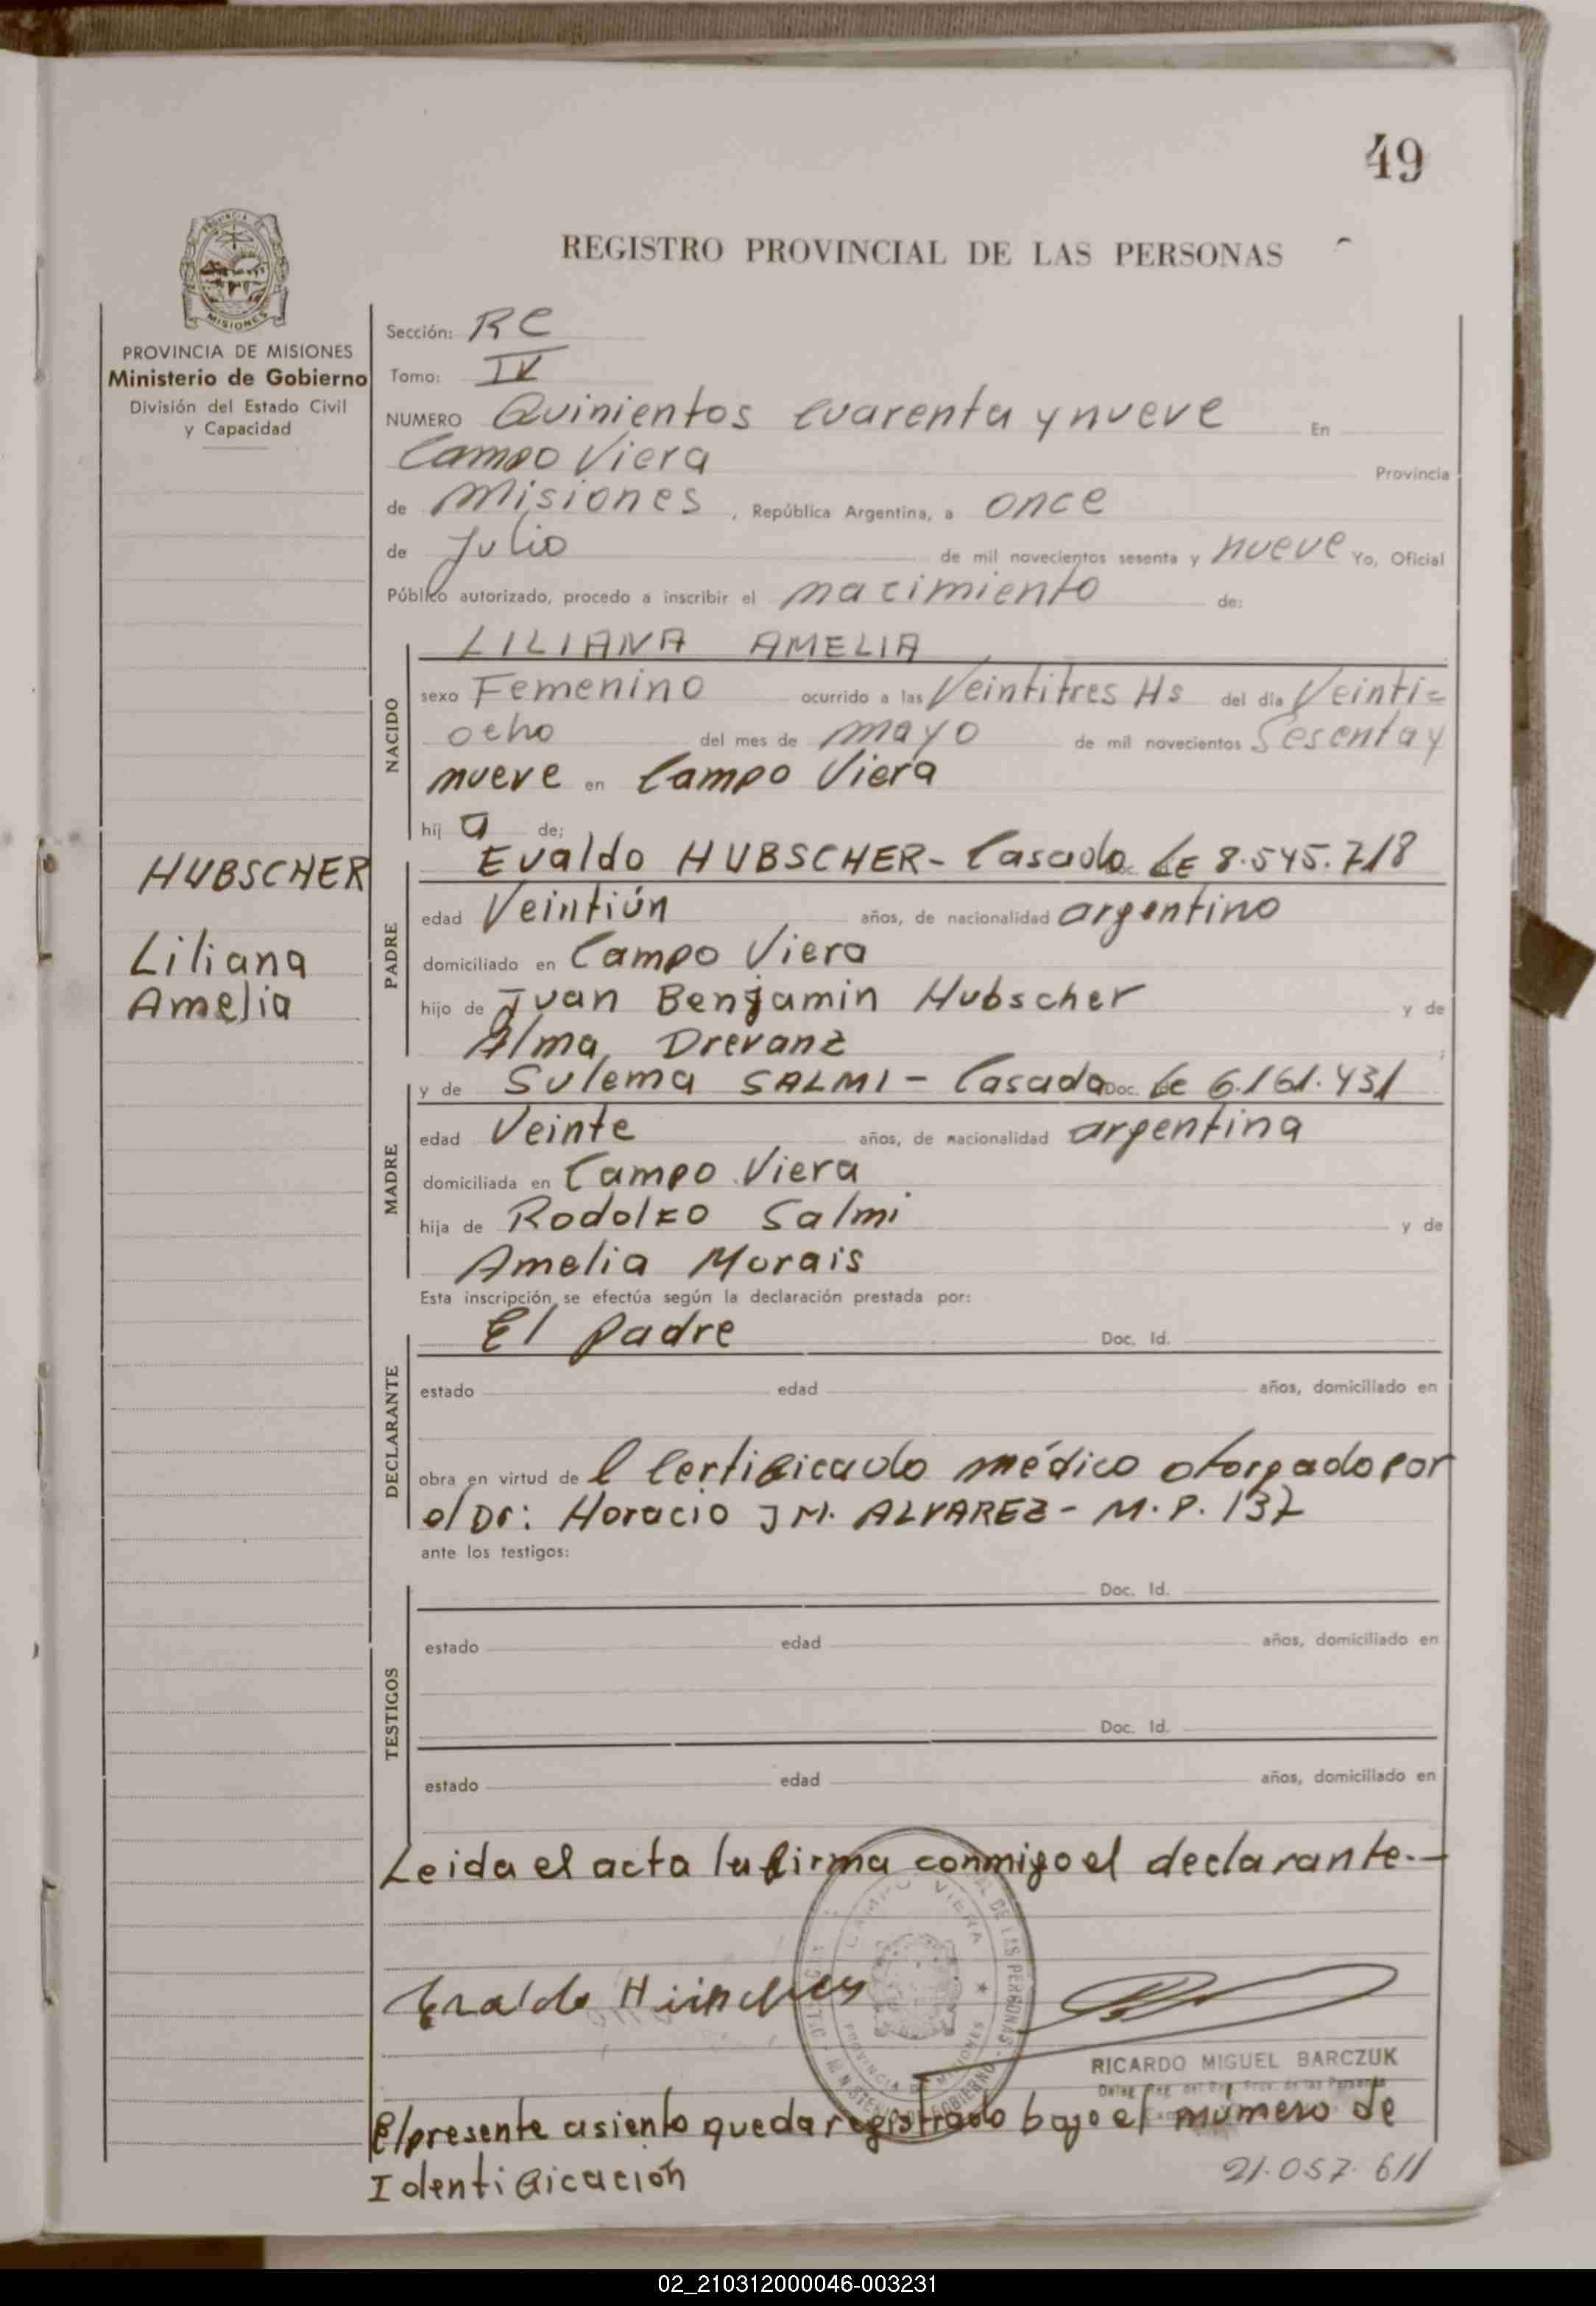 49
REGISTRO PROVINCIAL DE LAS PERSONAS
MISIONES
PROVINCIA DE MISIONES
Ministerio de Gobierno
División del Estado Civil
y Capacidad
Sección: RC
Tomo: IV
NUMERO Quinientos cuarenta y nueve En
Campo Viera Provincia
de Misiones, República Argentina, a once
de Julio de mil novecientos sesenta y nueve Yo, Oficial
Público autorizado, procedo a inscribir el nacimiento de:
NACIDO
LILIANA AMELIA
sexo Femenino ocurrido a las Veintitres Hs del día Veinti=
ocho del mes de mayo de mil novecientos Sesenta y
nueve en Campo Viera
hij a de:
HUBSCHER
Liliana
Amelia
PADRE
Evaldo HUBSCHER - Casado Doc. LE 8.545.718
edad Veintiún años, de nacionalidad argentino
domiciliado en Campo Viera
hijo de Juan Benjamin Hubscher y de
Alma Drevanz ;
MADRE
y de Sulema SALMI - Casada Doc. Le 6.161.431
edad Veinte años, de nacionalidad argentina
domiciliada en Campo Viera
hija de Rodolfo Salmi y de
Amelia Morais
Esta inscripción se efectúa según la declaración prestada por:
DECLARANTE
El padre Doc. Id.
estado edad años, domiciliado en
obra en virtud de l Certificado médico otorgado por
el Dr: Horacio J M. ALVAREZ - M.P. 137
ante los testigos:
TESTIGOS
Doc. Id.
estado edad años, domiciliado en
Doc. Id.
estado edad años, domiciliado en
Leida el acta la firma conmigo el declarante.-
CAMPO VIERA
PROVINCIA DE MISIONES
DE LAS PERSONAS - MINISTERIO DE GOBIERNO
RICARDO MIGUEL BARCZUK
El presente asiento queda registrado bajo el número de
Identificación 21.057.611
02_210312000046-003231